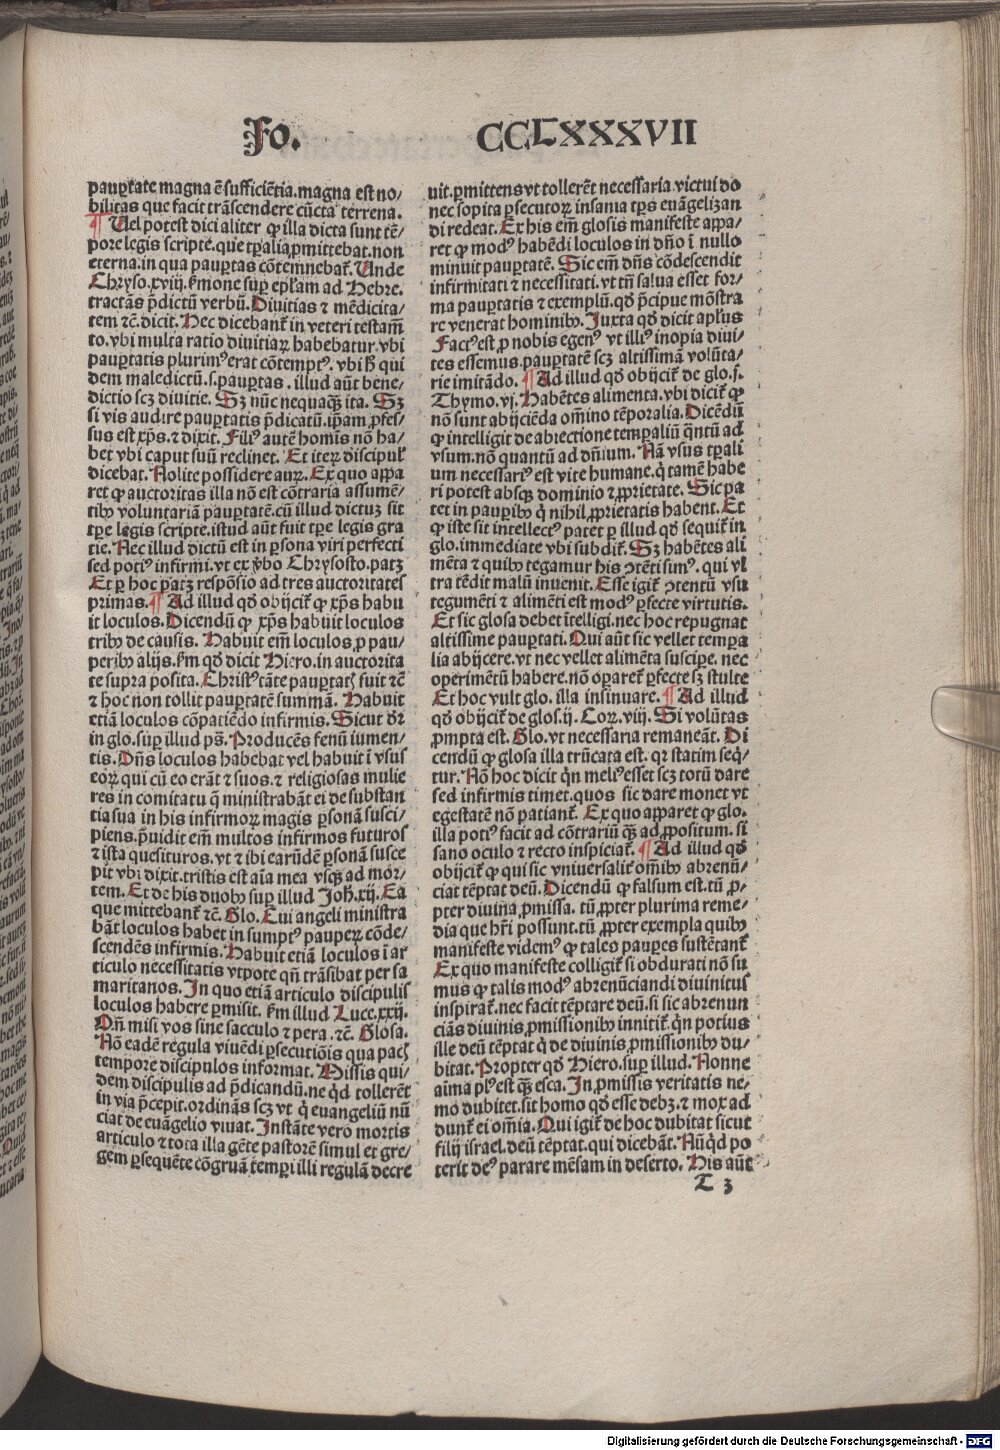 Fo. CCLXXXVII
paup̱tate magna ē sufficiētia. magna est no⸗
bilitas que facit trāscendere cūcta terrena.
¶ Uel potest dici aliter ꝙ illa dicta sunt tē⸗
pore legis scripte. que tꝑalia ꝓmittebat. non
eterna. in qua paup̱tas cōtemnebat᷑. Unde
Chryso. xviij. ẜmone suꝑ epl̄am ad Hebre.
tractās p̄dictū verbū. Diuitias ⁊ mēdicita⸗
tem ⁊c̄. dicit. Hec dicebant᷑ in veteri testam̄
to. vbi multa ratio diuitiaꝝ habebatur. vbi
pauꝑtatis plurimꝰ erat cōtemptꝰ. vbi h̄ qui
dem maledictū .s. pauꝑtas . illud aūt bene⸗
dictio scꝫ diuitie. Sꝫ nūc nequaꝗ̄ ita. Sꝫ
si vis audire pauꝑtatis p̄dicatū. ip̄am ꝓfes⸗
sus est xp̄s. ⁊ dixit. Filiꝰ autē homīs nō ha⸗
bet vbi caput suū reclinet. Et iteꝝ discipul̓
dicebat. Nolite possidere auꝝ. Ex quo appa
ret ꝙ auctoritas illa nō est cōtraria assume⸗
tibꝰ voluntariā pauꝑtatē. cū illud dictuꝫ sit
tꝑe legis scripte. istud aūt fuit tꝑe legis gra
tie. Nec illud dictū est in ꝑsona viri perfecti
sed potiꝰ infirmi. vt ex v̓bo Chrysosto. patꝫ
Et ꝑ hoc patꝫ respōsio ad tres auctoritates
primas. ¶ Ad illud qd̓ obijcit᷑ ꝙ xp̄s habu
it loculos. Dicendū ꝙ xp̄s habuit loculos
tribꝰ de causis. Habuit em̄ loculos ꝓ pau⸗
peribꝰ alijs. ẜm qd̓ dicit Hiero. in auctorita
te supra posita. Christꝰ tāte pauꝑtatꝭ fuit ⁊c̄
⁊ hoc non tollit pauꝑtatē summā. Habuit
etiā loculos cōpatiēdo infirmis. Sicut dr̄
in glo. suꝑ illud ps̄. Producēs fenū iumen⸗
tis. Dn̄s loculos habebat vel habuit ī vsus
eoꝝ qui cū eo erāt ⁊ suos. ⁊ religiosas mulie
res in comitatu q̄ ministrabāt ei de substan
tia sua in his infirmoꝝ magis ꝑsonā susci⸗
piens. p̄uidit em̄ multos infirmos futuros
⁊ ista quesituros. vt ⁊ ibi earūdē ꝑsonā susce
pit vbi dixit. tristis est aīa mea vsꝗ̄ ad mor⸗
tem. Et de his duobꝰ suꝑ illud Joh̄. xij. Ea
que mittebant᷑ ⁊c̄. Glo. Cui angeli ministra
bāt loculos habet in sumptꝰ pauperꝝ cōde⸗
scendēs infirmis. Habuit etiā loculos ī ar
ticulo necessitatis vtpote qn̄ trāsibat per sa
maritanos. In quo etiā articulo discipulis
loculos habere ꝑmisit. ẜm illud Luce. xxij.
Qn̄ misi vos sine sacculo ⁊ pera. ⁊c̄. Glosa.
Nō eadē regula viuēdi ꝑsecutiōis qua pacꝭ
tempore discipulos informat. Missis qui⸗
dem discipulis ad p̄dicandū. ne qd̓ tollerēt
in via p̄cepit. ordinās scꝫ vt q̇ euangeliū nū
ciat de euāgelio viuat. Instāte vero mortis
articulo ⁊ tota illa gēte pastorē simul et gre⸗
gem ꝑsequēte cōgruā tempi illi regulā decre
uit. ꝑmittens vt tollerēt necessaria victui do
nec sopita ꝑsecutoꝝ insania tꝑs euāgelizan
di redeat. Ex his em̄ glosis manifeste appa⸗
ret ꝙ modꝰ habēdi loculos in dn̄o ī nullo
minuit pauꝑtatē. Sic em̄ dn̄s cōdescendit
infirmitati ⁊ necessitati. vt tn̄ salua esset for⸗
ma pauꝑtatis ⁊ exemplū. qd̓ p̄cipue mōstra
re venerat hominibꝰ. Juxta qd̓ dicit apl̓us
Factꝰ est ꝓ nobis egenꝰ vt illiꝰ inopia diui⸗
tes essemus. pauꝑtatē scꝫ altissimā volūta⸗
rie imitādo. ¶ Ad illud qd̓ obijcit᷑ de glo. j.
Thymo. vj. Habētes alimenta. vbi dicit᷑ ꝙ
nō sunt abijciēda om̄ino tēporalia. Dicēdū
ꝙ intelligit de abiectione temꝑaliū q̄ntū ad
vsum. nō quantū ad dn̄ium. Nā vsus tꝑali
um necessariꝰ est vite humane. q̇ tamē habe
ri potest absꝗ̄ dominio ⁊ ꝓprietate. Sic pa
tet in pauꝑibꝰ q̇ nihil ꝓprietatis habent. Et
ꝙ iste sit intellectꝰ patet ꝑ illud qd̓ sequit᷑ in
glo. immediate vbi subdit᷑. Sꝫ habētes ali
mēta ⁊ quibꝰ tegamur his ꝯtēti simꝰ. qui vl
tra tēdit malū inuenit. Esse igit᷑ ꝯtentū vsu
tegumēti ⁊ alimēti est modꝰ ꝑfecte virtutis.
Et sic glosa debet ītelligi. nec hoc repugnat
altissime pauꝑtati. Qui aūt sic vellet temꝑa
lia abijcere. vt nec vellet alimēta suscipe. nec
operimētū habere. nō oꝑaret᷑ ꝑfecte sꝫ stulte
Et hoc vult glo. illa insinuare. ¶ Ad illud
qd̓ obijcit᷑ de glos. ij. Coꝝ. viij. Si volūtas
ꝓmpta est. Glo. vt necessaria remaneāt. Di
cendū ꝙ glosa illa trūcata est. qꝛ statim seq̇⸗
tur. Nō hoc dicit q̇n meliꝰ esset scꝫ totū dare
sed infirmis timet. quos sic dare monet vt
egestatē non patiant᷑. Ex quo apparet ꝙ glo.
illa potiꝰ facit ad cōtrariū ꝗ̄ ad ꝓpositum. si
sano oculo ⁊ recto inspiciat᷑. ¶ Ad illud qd̓
obijcit᷑ ꝙ qui sic vniuersalit̓ om̄ibꝰ abrenū⸗
ciat tēptat deū. Dicendū ꝙ falsum est. tū ꝓ⸗
pter diuina ꝓmissa. tū ꝓpter plurima reme⸗
dia que hr̄i possunt. tū ꝓpter exempla quibꝰ
manifeste videmꝰ ꝙ tales pauꝑes sustētant᷑
Ex quo manifeste colligit᷑ si obdurati nō su
mus ꝙ talis modꝰ abrenūciandi diuinitus
inspirat᷑. nec facit tēptare deū. si sic abrenun
ciās diuinis ꝓmissionibꝰ innitit᷑. q̇n potius
ille deū tēptat q̇ de diuinis ꝓmissionibꝰ du⸗
bitat. Propter qd̓ Hiero. suꝑ illud. Nonne
aīma plꝰ est ꝗ̄ esca. In ꝓmissis veritatis ne⸗
mo dubitet. sit homo qd̓ esse debꝫ. ⁊ mox ad
dunt᷑ ei om̄ia. Qui igit᷑ de hoc dubitat sicut
filij israel. deū tēptat. qui dicebāt. Nūqd̓ po
terit deꝰ parare mēsam in deserto. His aūt
T 3
Digitalisierung gefördert durch die Deutsche Forschungsgemeinschaft - DFG